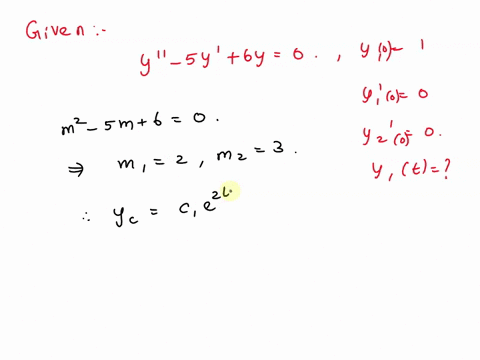 Given :-
y'' - 5y' + 6y = 0 . , y₁(0) = 1
y₁'(0) = 0
m² - 5m + 6 = 0 .
y₂'(0) = 0 .
⇒ m₁ = 2 , m₂ = 3 .
y₁(t) = ?
∴ y_c = c₁ e^2t